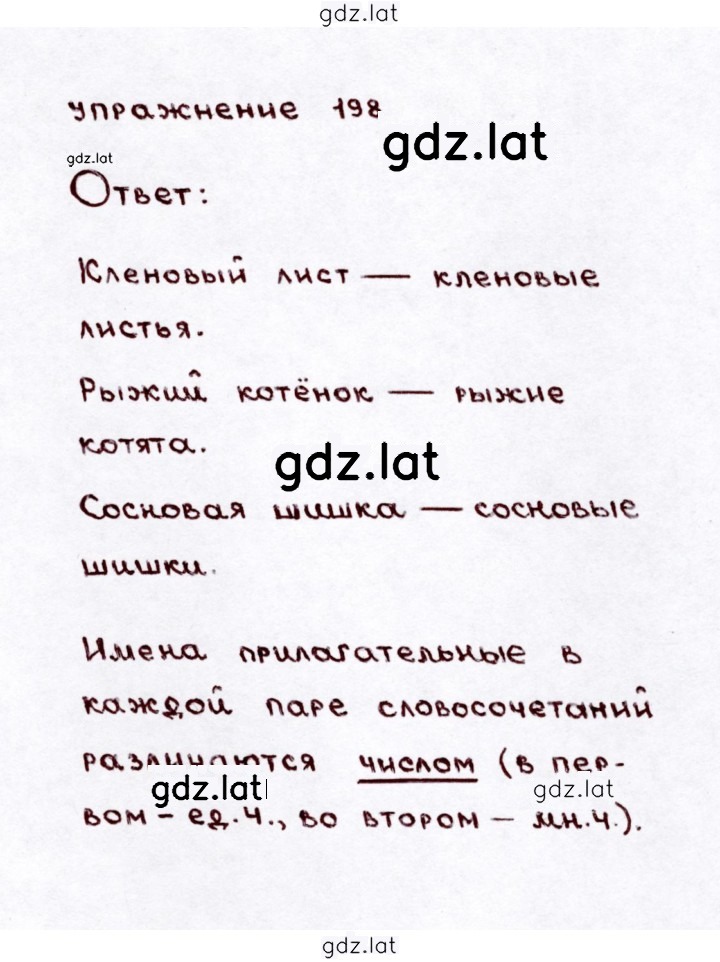 gdz.lat
упражнение 198
gdz.lat
gdz.lat
Ответ:
Кленовый лист — кленовые
листья.
Рыжий котёнок — рыжие
котята.
gdz.lat
Сосновая шишка — сосновые
шишки.
Имена прилагательные в
каждой паре словосочетаний
различаются числом (в пер-
gdz.lat
gdz.lat
вом - ед.ч., во втором - мн.ч.).
gdz.lat